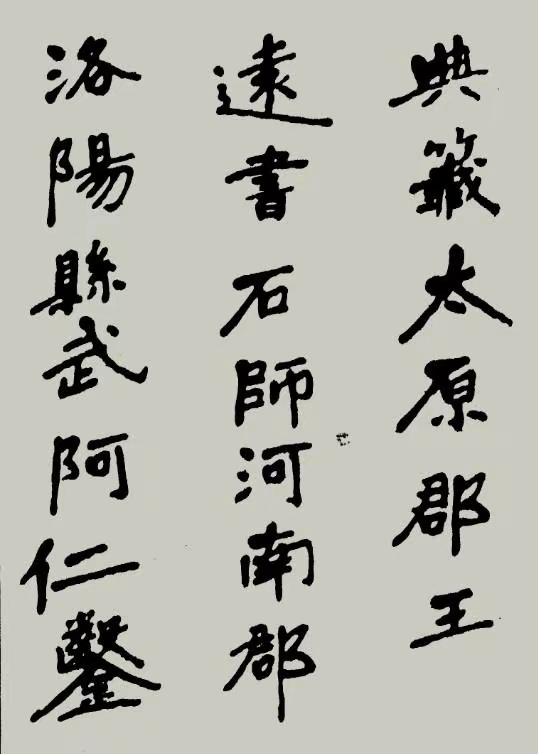 典籖太原郡王
遠書石師河南郡
洛陽縣武阿仁鑿